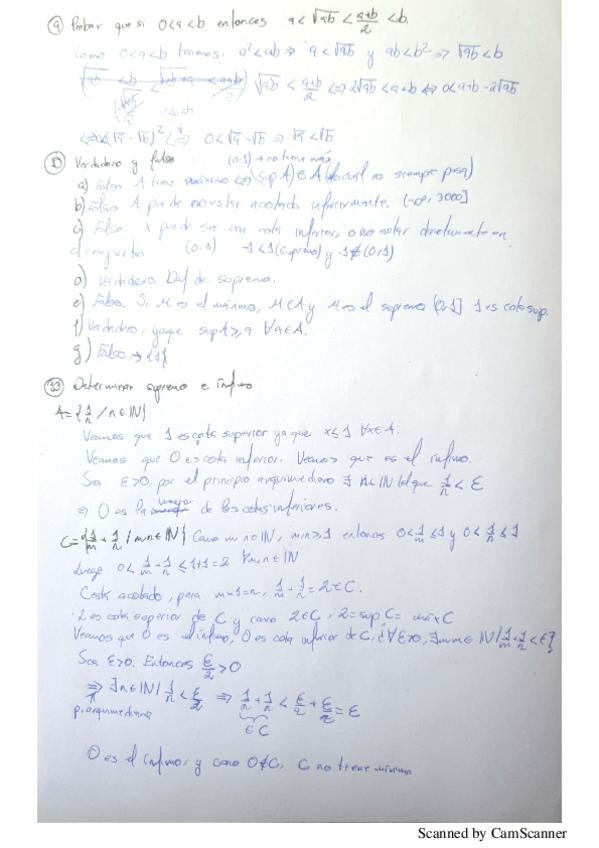 ⑨ Probar que si 0<a<b entonces a < √ab < (a+b)/2 < b.
Como 0<a<b tenemos. a²<ab ⇒ a<√ab y ab<b² ⇒ √ab<b
√ab < (a+b)/2 ⇔ 2√ab < a+b ⇔ 0<a+b-2√ab
0<a<b
⇔ 0<(√a-√b)² ⇔ 0<√a-√b ⇒ √a<√b
⑩ Verdadero y falso (0,1) → no tiene máx
a) Falso A tiene máximo ⇔ (sup A) ∈ A (lo cual no siempre pasa)
b) Falso A puede no estar acotado inferiormente. (-∞, 3000]
c) Falso. x puede ser una cota inferior, o no estar directamente en
el conjunto (0,1) -1<1 (supremo) y -1∉(0,1)
d) Verdadero. Def de supremo.
e) Falso. Si M es el máximo, M∈A y M es el supremo [0,1] 1 es cota sup.
f) Verdadero, ya que sup A ≥ a ∀a∈A.
g) Falso → {1}
Determinar supremo e ínfimo
A={1/n / n∈IN}
Veamos que 1 es cota superior ya que x≤1 ∀x∈A.
Veamos que 0 es cota inferior. Veamos que es el ínfimo.
Sea ε>0, por el principio arquimediano ∃ n∈IN tal que 1/n < ε
⇒ 0 es la mayor de las cotas inferiores.
C={1/m + 1/n / m,n∈IN} Como m,n∈IN, m,n≥1 entonces 0<1/m≤1 y 0<1/n≤1
Luego 0 < 1/m + 1/n ≤ 1+1=2 ∀m,n∈IN
C está acotado, para m=1=n, 1/m + 1/n = 2∈C.
· 2 es cota superior de C y como 2∈C, 2=sup C= máx C
Veamos que 0 es el ínfimo, 0 es cota inferior de C, ¿∀ε>0, ∃m,n∈IN / 1/m + 1/n < ε?
Sea ε>0. Entonces ε/2 >0
⇒ ∃n∈IN / 1/n < ε/2 ⇒ 1/n + 1/n < ε/2 + ε/2 = ε
p. arquimediana ∈ C
0 es el ínfimo, y como 0∉C, C no tiene mínimo
Scanned by CamScanner